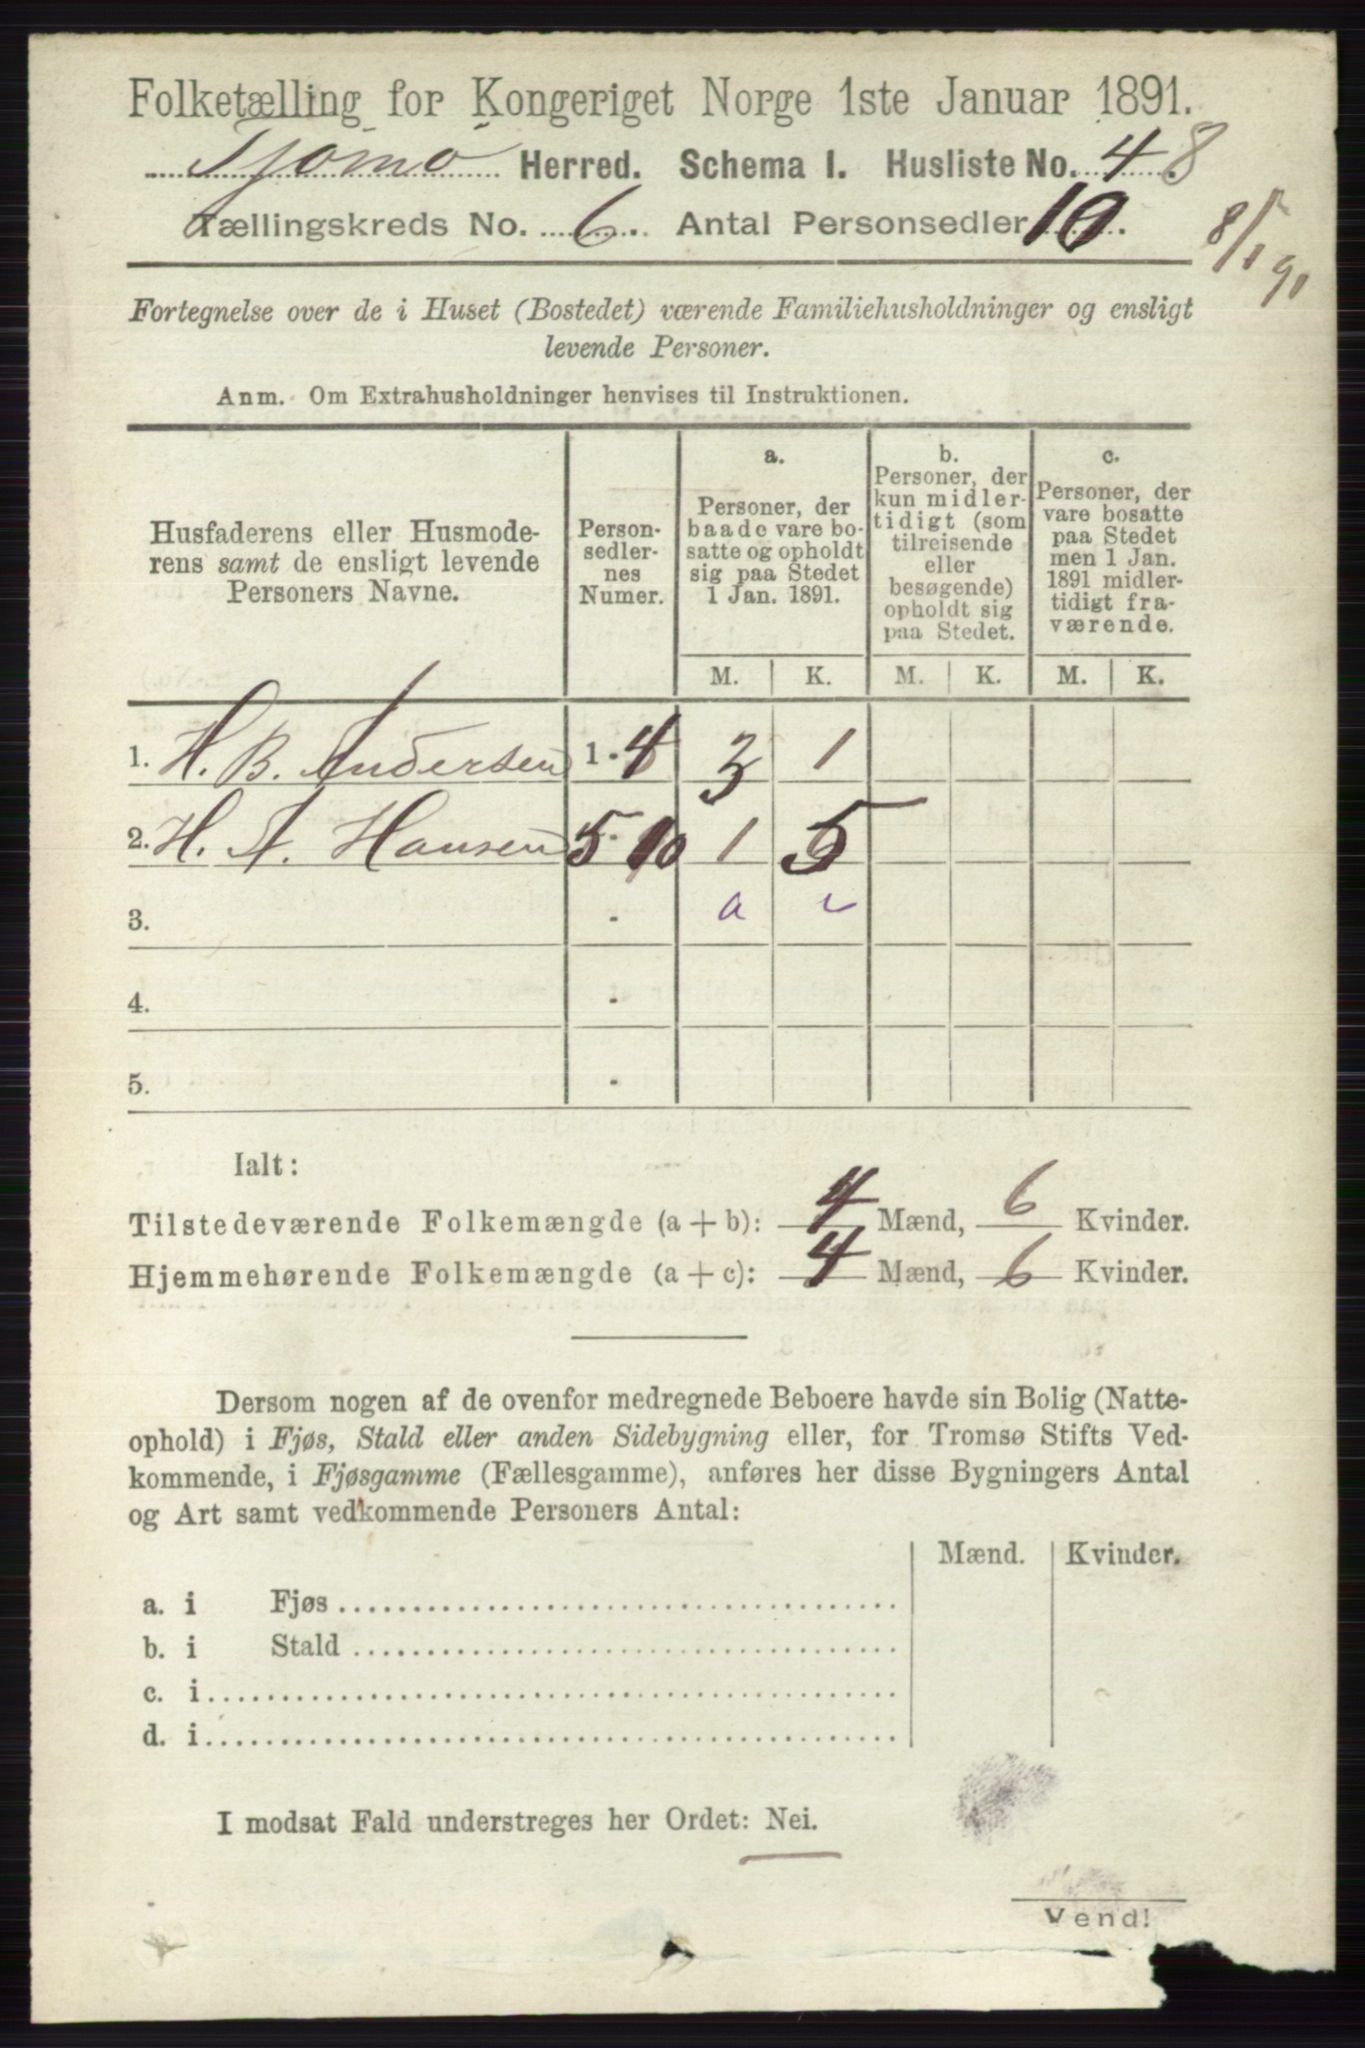 Folketælling for Kongeriget Norge 1ste Januar 1891.
Tjømø Herred. Schema I. Husliste No. 48
Tællingskreds No. 6. Antal Personsedler 10.
8/1 91
Fortegnelse over de i Huset (Bostedet) værende Familiehusholdninger og ensligt
levende Personer.
Anm. Om Extrahusholdninger henvises til Instruktionen.
Husfaderens eller Husmode-
rens samt de ensligt levende
Personers Navne.
Person-
sedler-
nes
Numer.
a.
Personer, der
baade vare bo-
satte og opholdt
sig paa Stedet
1 Jan. 1891.
b.
Personer, der
kun midler-
tidigt (som
tilreisende
eller
besøgende)
opholdt sig
paa Stedet.
c.
Personer, der
vare bosatte
paa Stedet
men 1 Jan.
1891 midler-
tidigt fra-
værende.
M. K. M. K. M. K.
1. H. B. Andersen 1 - 4 3 1
2. H. A. Hansen 5 - 10 1 5
3. - a
4. -
5. -
Ialt:
Tilstedeværende Folkemængde (a + b): 4 Mænd, 6 Kvinder.
Hjemmehørende Folkemængde (a + c): 4 Mænd, 6 Kvinder.
Dersom nogen af de ovenfor medregnede Beboere havde sin Bolig (Natte-
ophold) i Fjøs, Stald eller anden Sidebygning eller, for Tromsø Stifts Ved-
kommende, i Fjøsgamme (Fællesgamme), anføres her disse Bygningers Antal
og Art samt vedkommende Personers Antal:
Mænd. Kvinder.
a. i Fjøs
b. i Stald
c. i
d. i
I modsat Fald understreges her Ordet: Nei.
Vend!